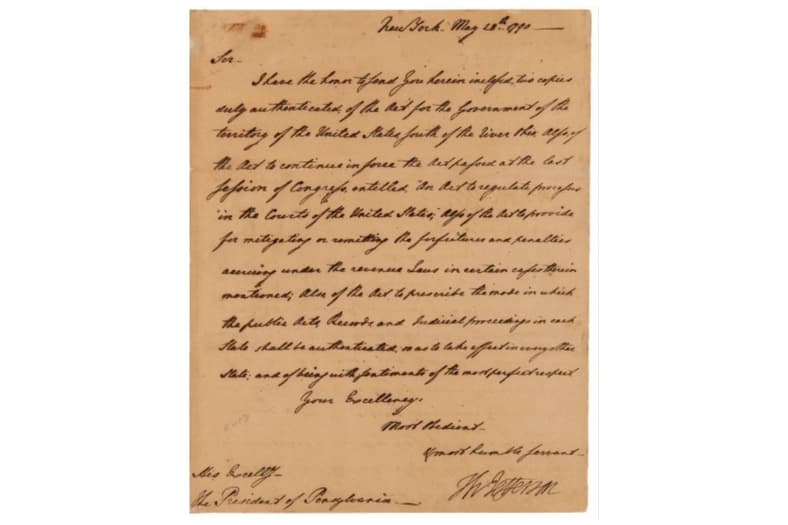 New York May 28th 1790
Sir
I have the honor to send You herein inclosed, two copies
duly authenticated, of the Act for the Government of the
territory of the United States, South of the river Ohio. Also of
the Act to continue in force the Act passed at the last
session of Congress, entitled, "An Act to regulate processes
in the Courts of the United States;" Also of the Act to provide
for mitigating or remitting the forfeitures and penalties
accruing under the revenue Laws in certain cases therein
mentioned; Also of the Act to prescribe the mode in which
the public Acts, Records, and Judicial proceedings in each
State shall be authenticated, so as to take effect in every other
State; and of being with sentiments of the most perfect respect
Your Excellency's
Most Obedient
& most humble servant
Th Jefferson
His Excelly
The President of Pensylvania